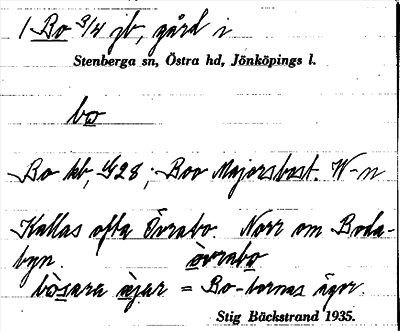 1 Bo 3/4 jb, gård i
Stenberga sn, Östra hd, Jönköpings l.
bo
Bo kb, 428; Boo Majorsbost. W-n
Kallas ofta Övrabo. Norr om Boda-
byn. övrabo
bosara ägar = Bo-bornas ägor.
Stig Bäckstrand 1935.